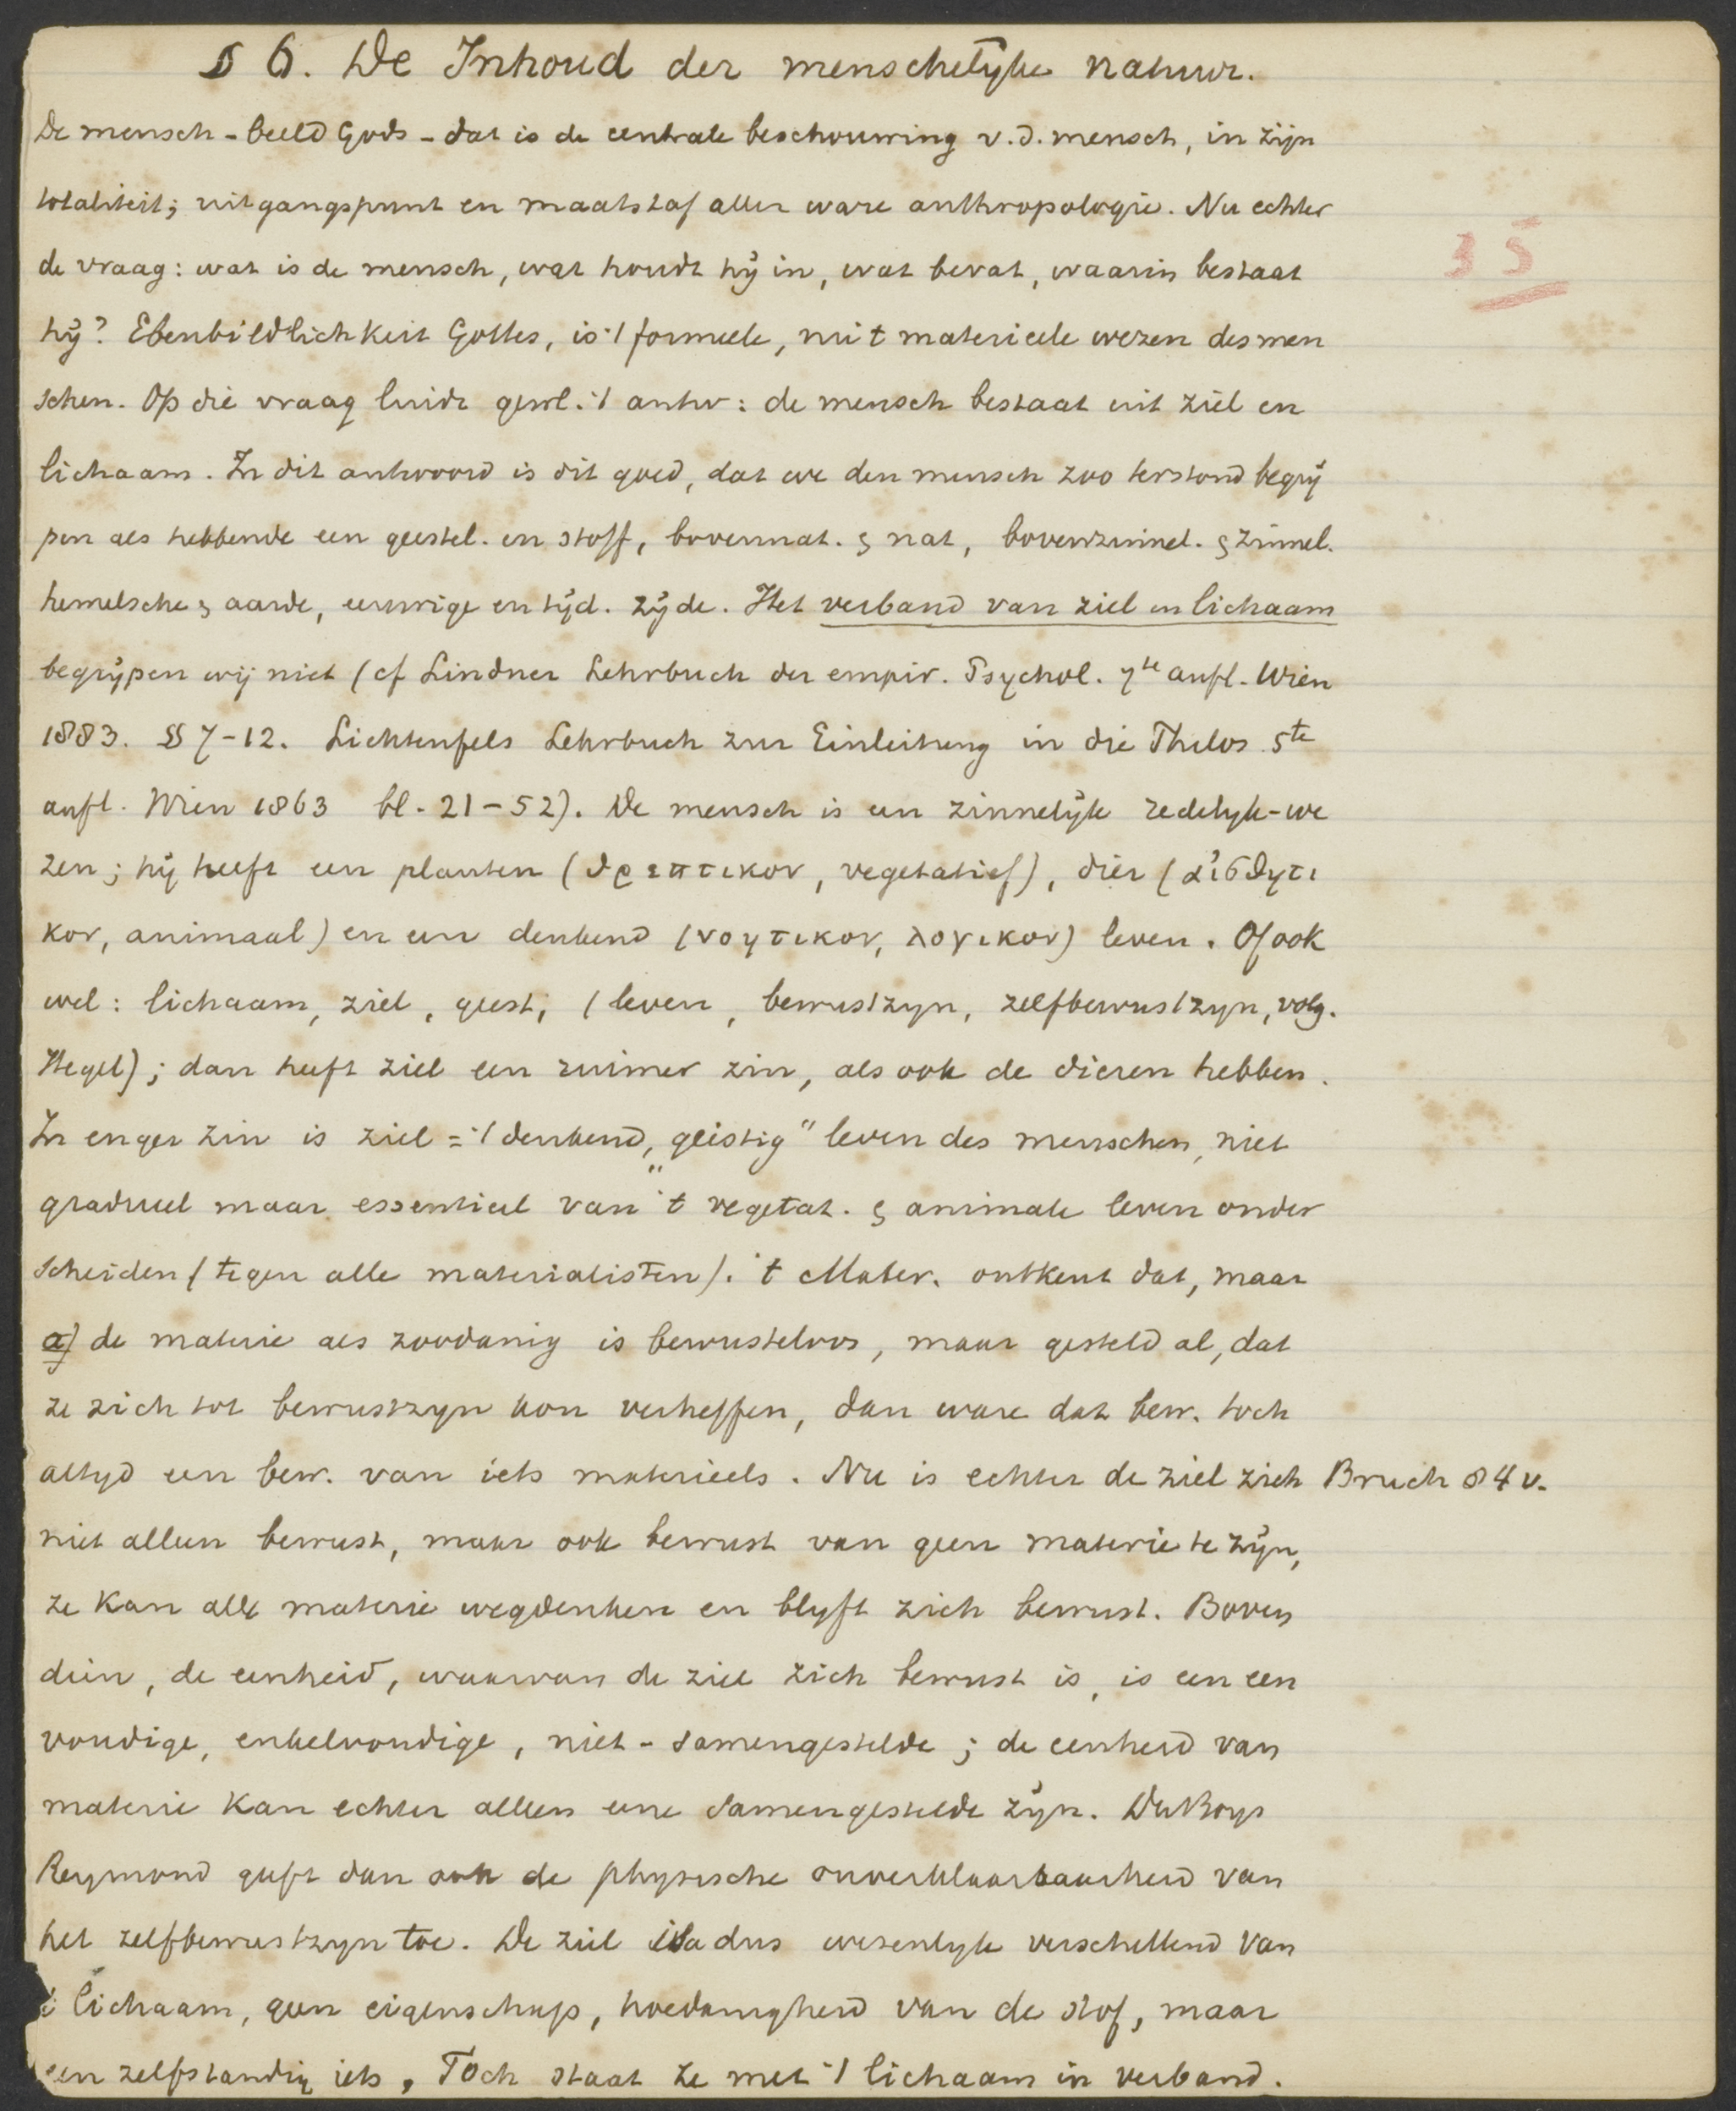 § 6. De Inhoud der menschelyke natuur.
De mensch - beeld Gods - dat is de centrale beschouwing v. d. mensch, in zijn
totaliteit; uitgangspunt en maatstaf aller ware anthropologie. Nu echter
35
de vraag: wat is de mensch, wat houdt hÿ in, wat bevat, waarin bestaat
hÿ? Ebenbildlichkeit Gottes, is 't formeele, nu 't materieele wezen des men
schen. Op die vraag luidt gewl. 't antw: de mensch bestaat uit ziel en
lichaam. In dit antwoord is dit goed, dat we den mensch zoo terstond begrÿ
pen als hebbende een geestel. en stoff, bovennat. & nat, bovenzinnel. & zinnel.
hemelsche & aarde, eeuwige en tÿd. zÿde. Het verband van ziel en lichaam
begrÿpen wij niet (cf Lindner Lehrbuch der empir. Psychol. 7te aufl. Wien
1883. §§ 7-12. Lichtenfels Lehrbuch zur Einleitung in die Philos 5te
aufl. Wien 1863 bl. 21-52). De mensch is een zinnelÿk redelyk-we
zen; hÿ heeft een planten (θρεπτικον, vegetatief), dier (αἰσθητι
κον, animaal) en een denkend (νοητικον, λογικον) leven. Of ook
wel: lichaam, ziel, geest; (leven, bewustzyn, zelfbewustzyn, volg.
Hegel); dan heeft ziel een ruimer zin, als ook de dieren hebben.
In enger zin is ziel = 't denkend, „geistig" leven des menschen, niet
gradueel maar essentieel van 't vegetat. & animale leven onder
scheiden (tegen alle materialisten). 't Mater. ontkent dat, maar
a) de materie als zoodanig is bewusteloos, maar gesteld al, dat
ze zich tot bewustzyn kon verheffen, dan ware dat bew. toch
altyd een bew. van iets materieels. Nu is echter de ziel zich Bruch 84 v.
niet alleen bewust, maar ook bewust van geen materie te zÿn,
ze kan alle materie wegdenken en blyft zich bewust. Boven
dien, de eenheid, waarvan de ziel zich bewust is, is een een
voudige, enkelvoudige, niet-samengestelde; de eenheid van
materie kan echter alleen eene samengestelde zÿn. DuBoys
Reymond geeft dan ook de physische onverklaarbaarheid van
het zelfbewustzyn toe. De ziel is dus wesenlyk verschillend van
't lichaam, geen eigenschap, hoedanigheid van de stof, maar
een zelfstandig iets, Toch staat ze met 't lichaam in verband.